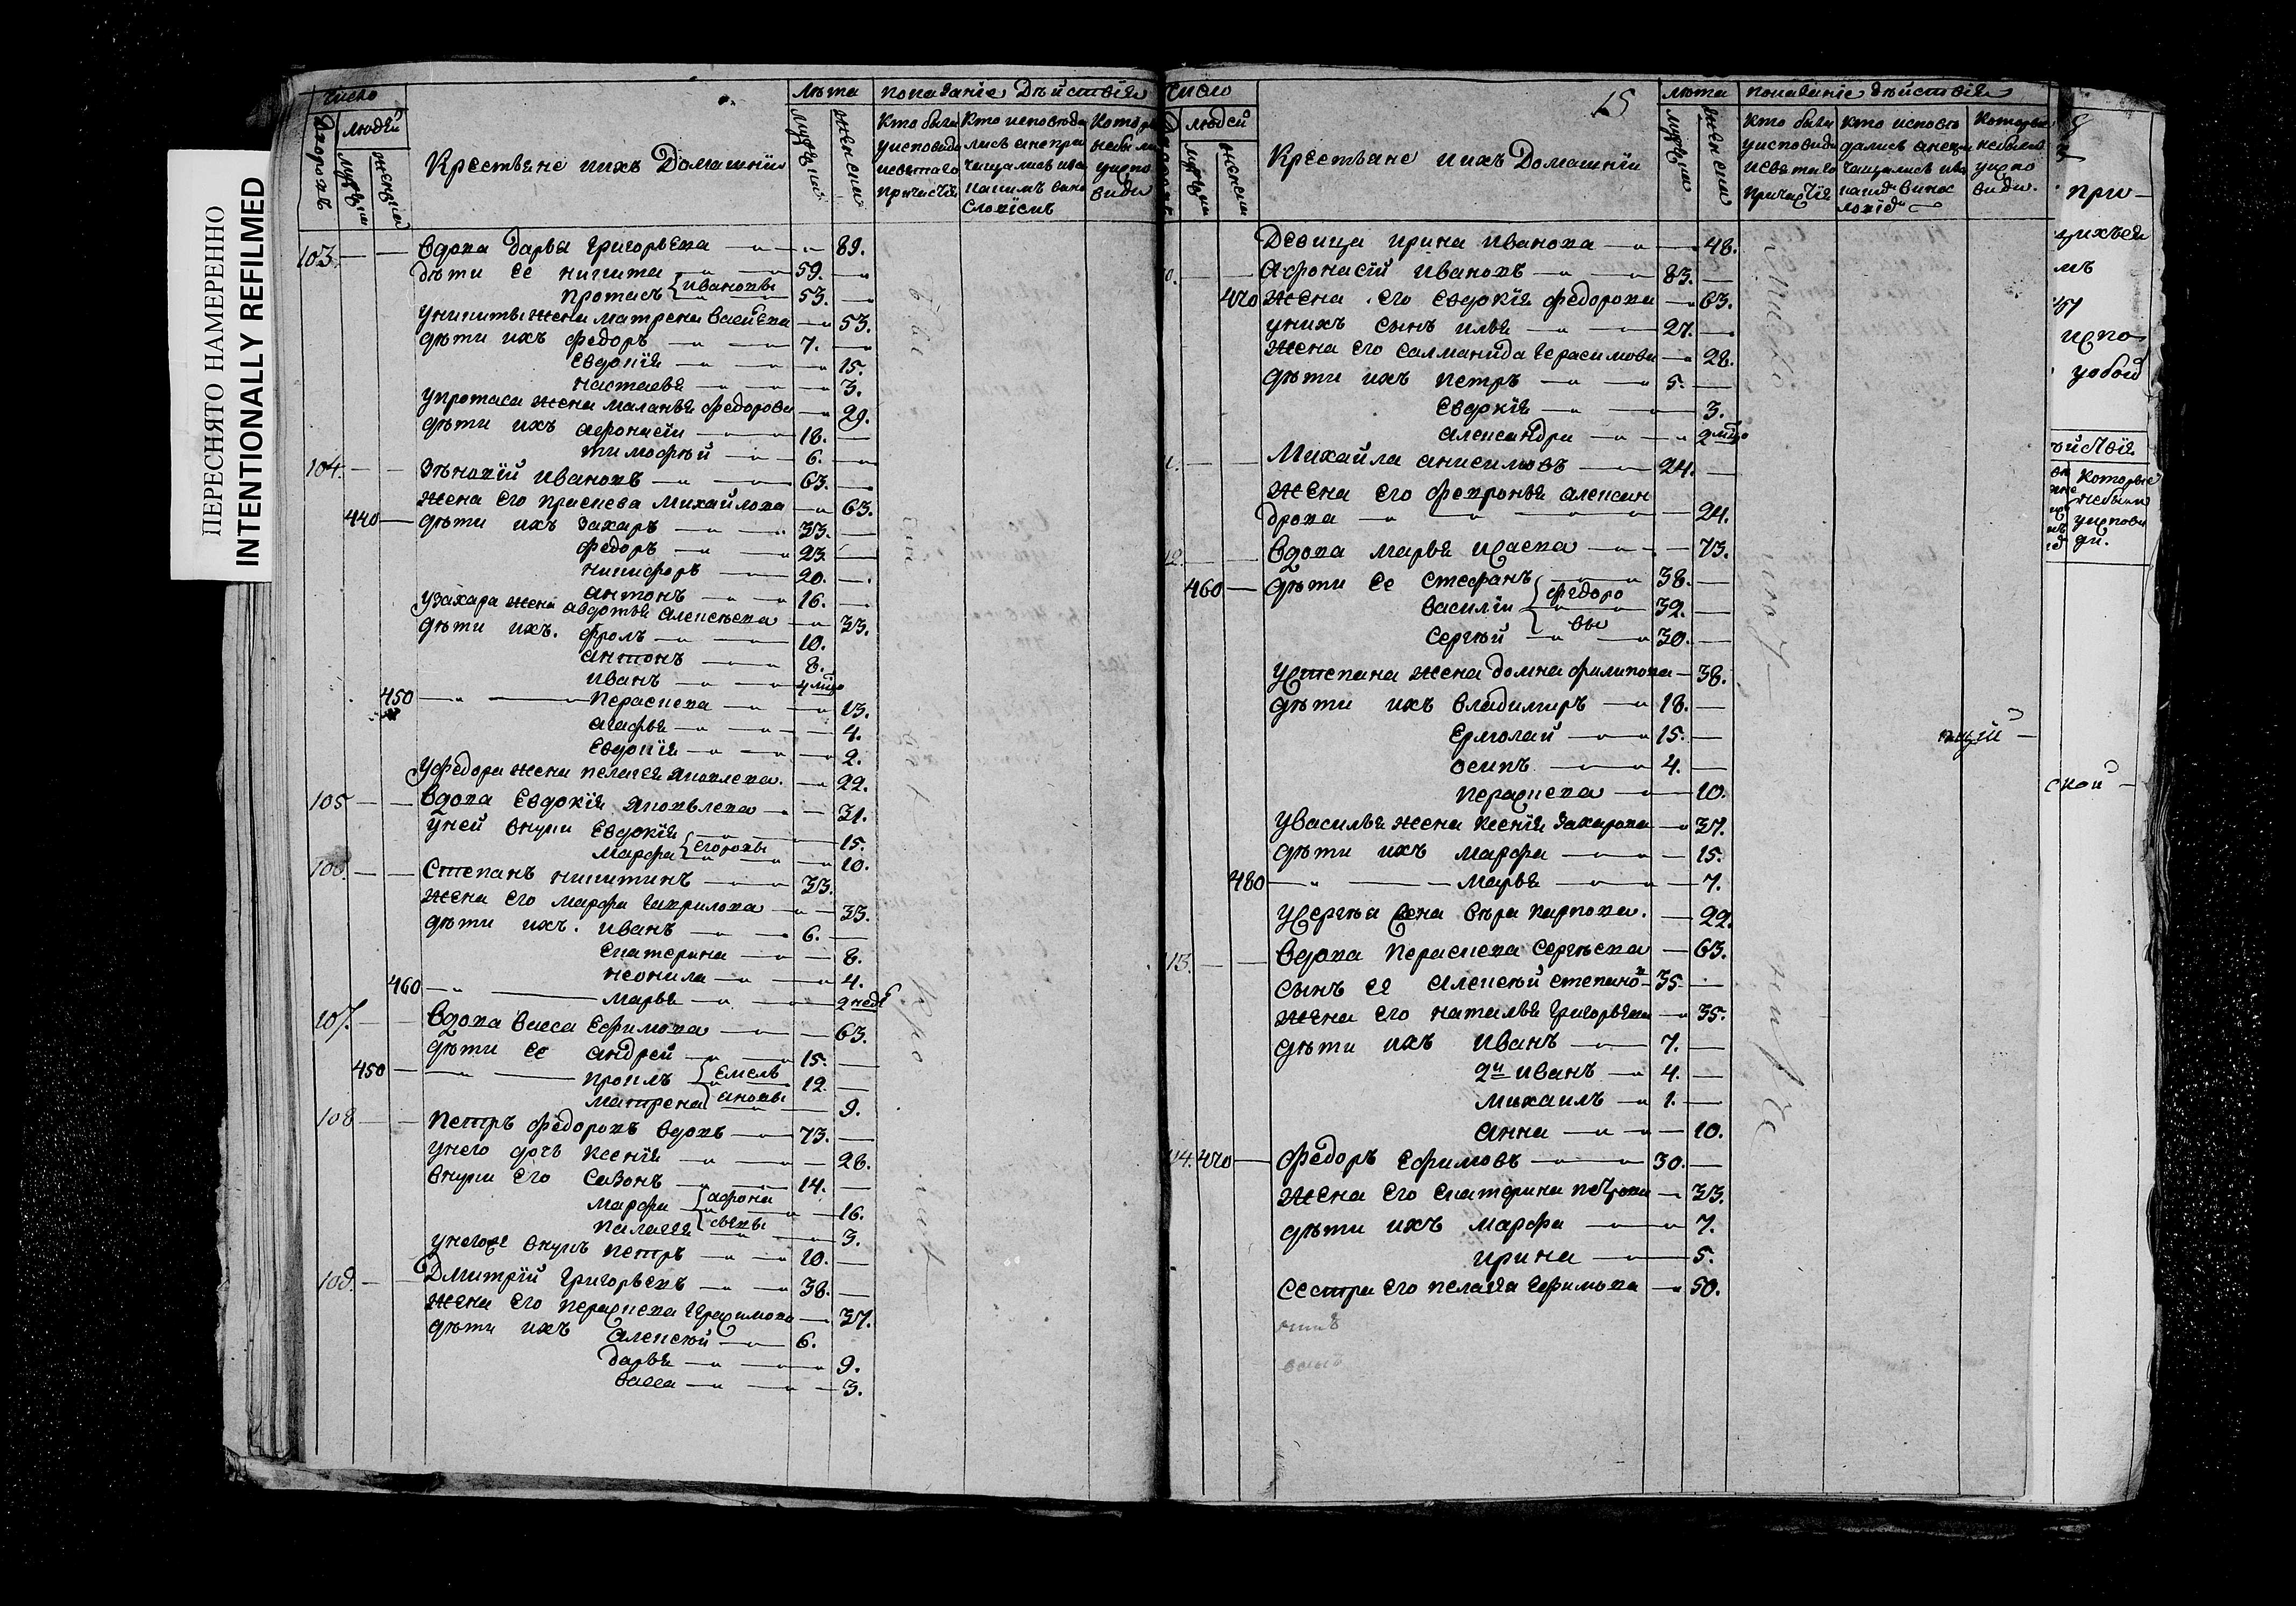 ПЕРЕСНЯТО НАМЕРЕННО
INTENTIONALLY REFILMED
Число Лѣта показаніе Дѣйствія
Дворовъ людей мужеска женска Крестьяне иихъ Домашнія мужеска женска
Кто были уисповеди исвятаго причастія
Кто исповѣдались анепричащались ивъ какимъ вино слокiемъ
Которые небыли уисповеди
103. Вдова дарья Григорьева 89.
дѣти ее никита Ивановы 59.
протасъ 53.
уникиты жена матрена васильева 53.
дѣти ихъ федоръ 7.
Евдокія 15.
настасья 3.
упротаса жена маланья федорова 29.
дѣти ихъ афонасіи 18.
тимофѣй 6.
104. Зѣновій Ивановъ 63.
жена Его праскева михайлова 63.
440 дѣти ихъ захаръ 33.
федоръ 23.
никифоръ 20.
антонъ 16.
узахара жена авдотья алексѣева 33.
дѣти ихъ. фролъ 10.
антонъ 8.
иванъ 4 мцо
450 Пераскева 13.
агафья 4.
Евдокія 2.
уфедора жена пелагея яковлева. 22.
105 Вдова Евдокія яковлева 31.
уней внуки Евдокія Егоровы 15.
марфа 10.
106. Степанъ никитинъ 33.
жена его марфа гаврилова 33.
дѣти ихъ. иванъ 6.
Екатерина 8.
неонила 4.
460 марья 2 недѣ
107. Вдова васса Ефимова 63.
дѣти ее андрей 15.
450 проклъ Емель 12.
матрена яновы 9.
108 Петръ федоровъ вдовъ 73.
унего дочь ксенія 28.
внуки его сазонъ 14.
марфа афона 16.
палагея сьевы 3.
унегоже внукъ петръ 10.
109. Дмитрій Григорьевъ 38.
жена его пераскева Герасимова 37.
дѣти ихъ алексѣй 6.
дарья 9.
васса 3.
15
число лѣта показаніе дѣйствія
людей мужеска женска Крестьяне иихъ Домашніи мужеска женска
Кто были уисповеди исвятаго причастія
кто исповѣдались анепричащались
Которые небыли уисповеди.
Девица ирина иванова 48.
0. Афонасій ивановъ 83.
470 жена его евдокія федорова 63.
унихъ сынъ илья 27.
жена его салманида герасимова 28.
дѣти ихъ петръ 5.
евдокія 3.
александра 2 мцо
1. Михайла анисимовъ 24.
жена его февронья алексан
дрова 24.
12. Вдова марья исаева 73.
460 дѣти ее стефанъ 38.
василіи федоро 32.
сергѣй вы 30.
устепана жена домна филипова 38.
дѣти ихъ владимиръ 18.
ермолай 15.
осипъ 4.
пераскева 10.
увасилья жена ксенія захарова 37.
дѣти ихъ марфа 15.
480 марья 7.
усергѣа жена вѣра карпова. 22.
113. вдова пераскева сергѣева 63.
сынъ ее алексѣй степанов 35.
жена его наталья григорьева 35.
дѣти ихъ иванъ 7.
2й иванъ 4.
михаилъ 1.
анна 10.
114. 470 федоръ ефимовъ 30.
жена его екатерина петрова 33.
дѣти ихъ марфа 7.
ирина 5.
сестра его пелагея ефимова 50.
при-
мъ
испо
ской
Которые
небыли
уиспове
ди.